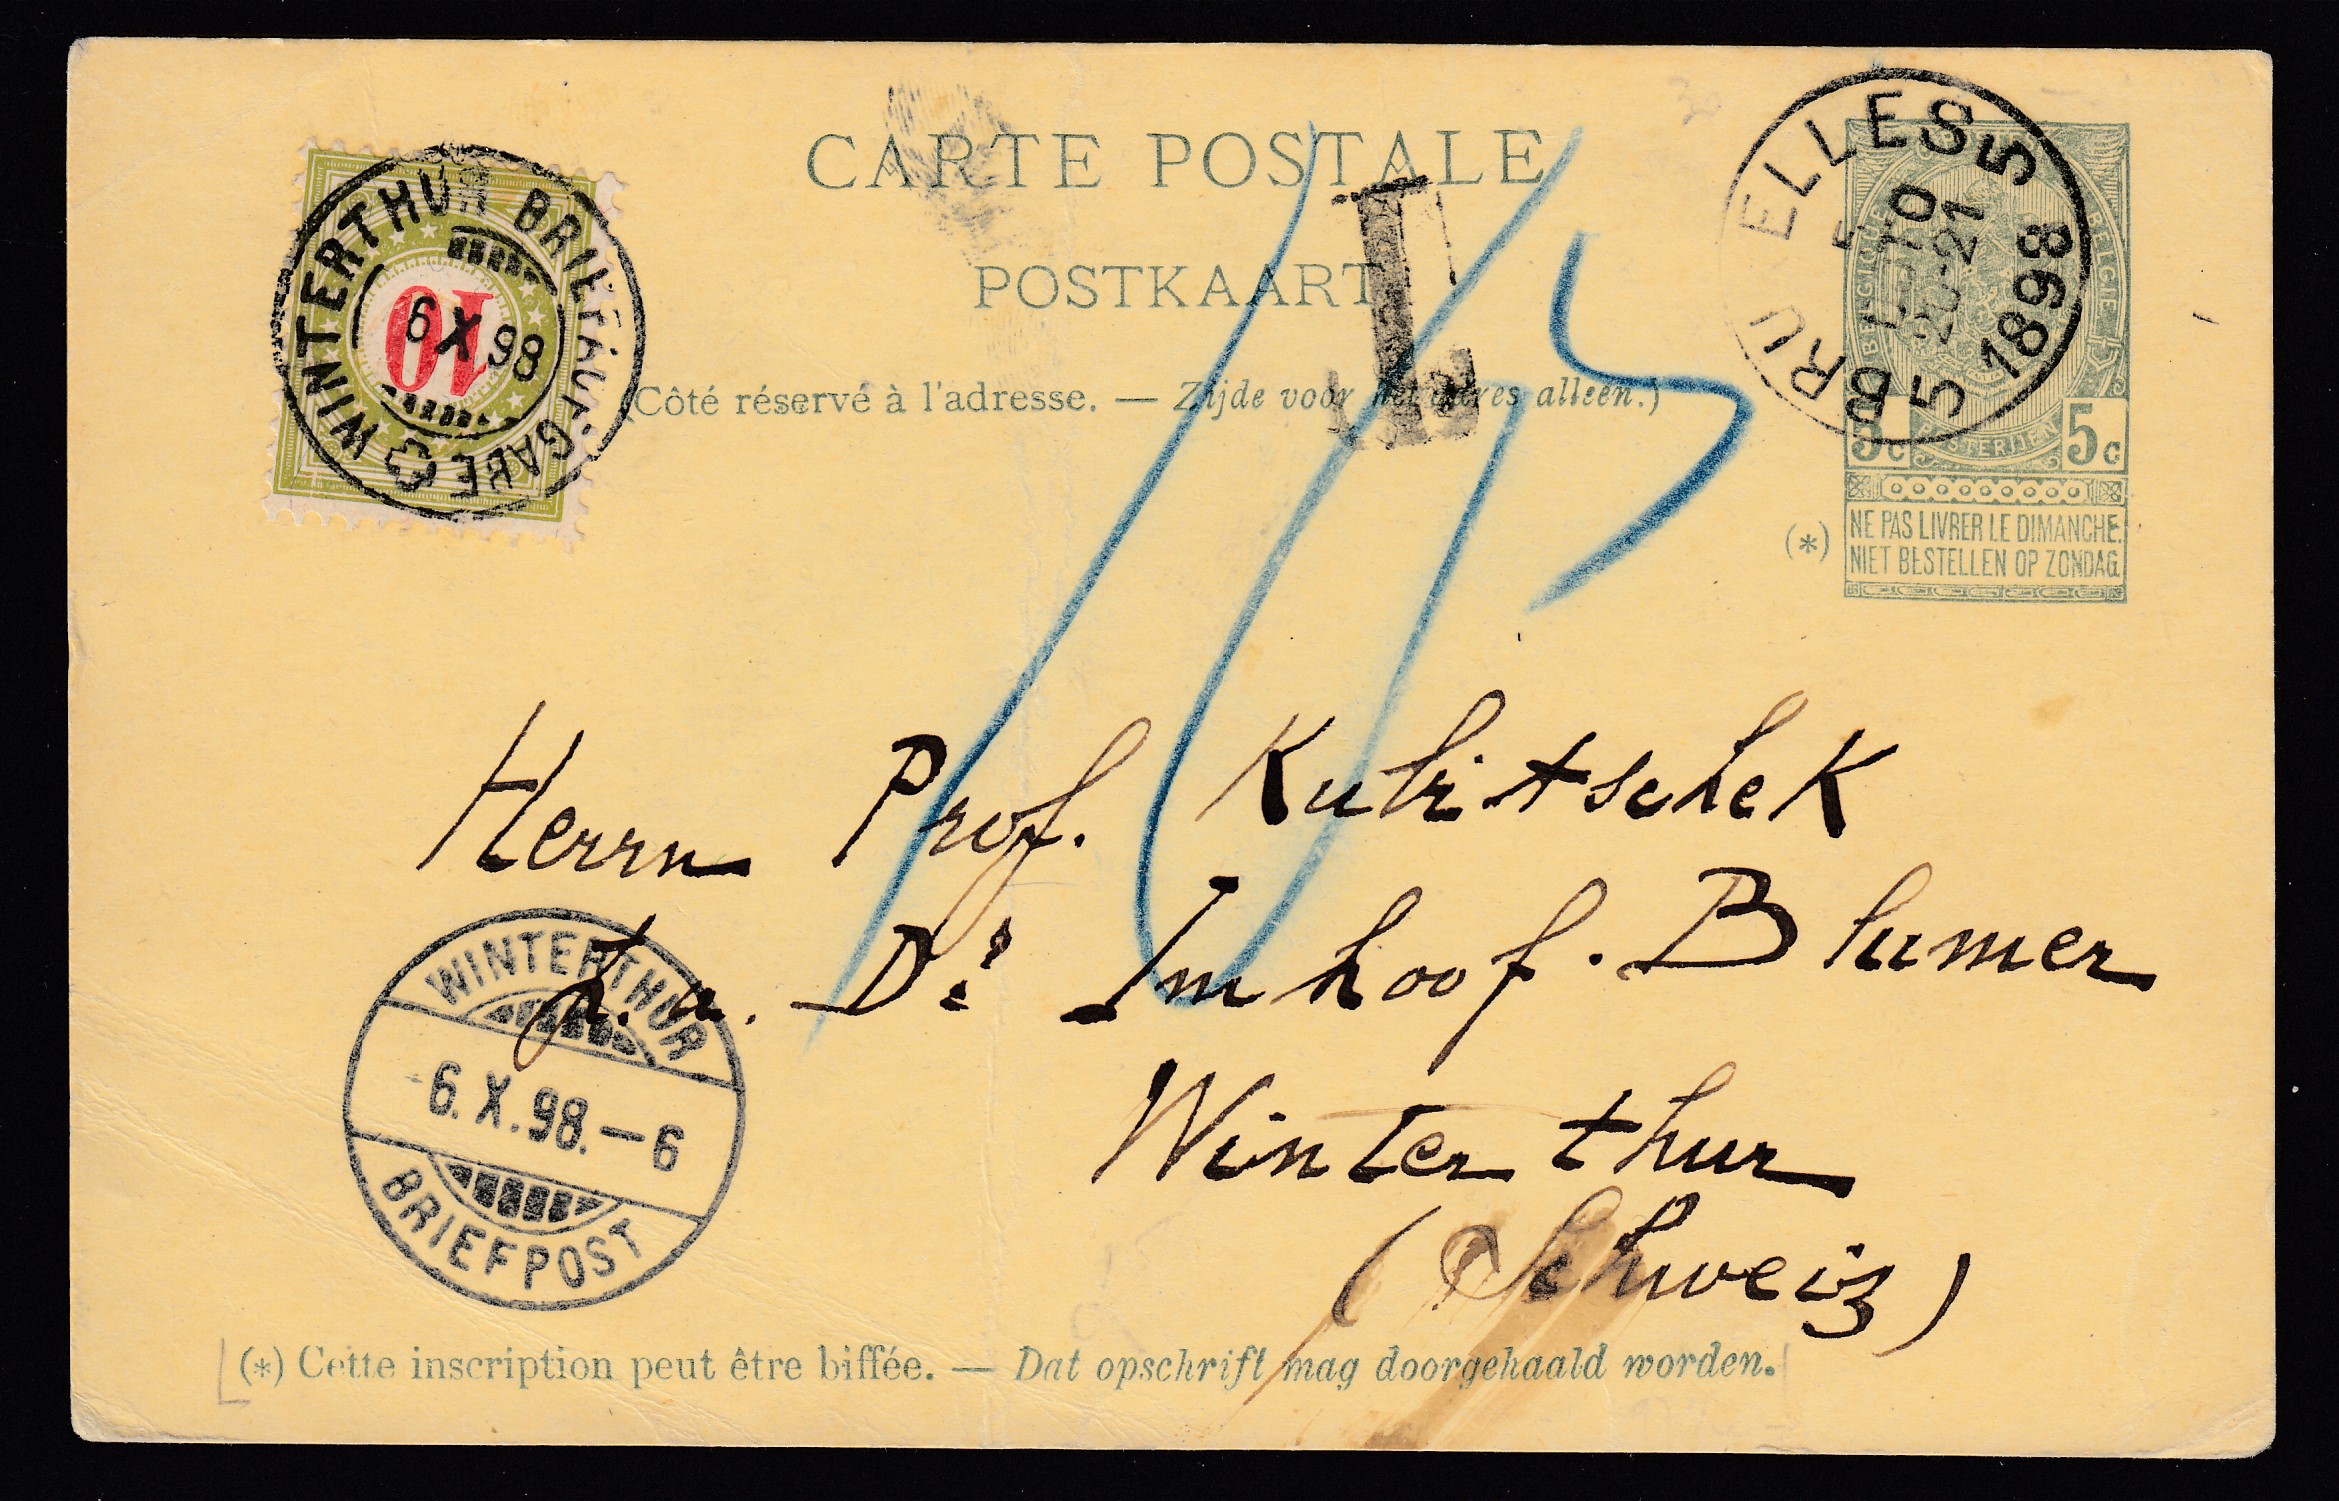 CARTE POSTALE
POSTKAART
(Côté réservé à l'adresse. — Zijde voor het adres alleen.)
WINTERTHUR BRIEFAUFGABE
6 X 98
10
T
BRUXELLES 5
5 OCTO
20-21
1898
5
BELGIQUE
BELGIE
POSTERIJEN
5c
5c
(*)
NE PAS LIVRER LE DIMANCHE.
NIET BESTELLEN OP ZONDAG.
Herrn Prof. Kubitschek
z. a. Dr. Imhoof-Blumer
Winterthur
(Schweiz)
WINTERTHUR
6.X.98.–6
BRIEFPOST
(*) Cette inscription peut être biffée. — Dat opschrift mag doorgehaald worden.